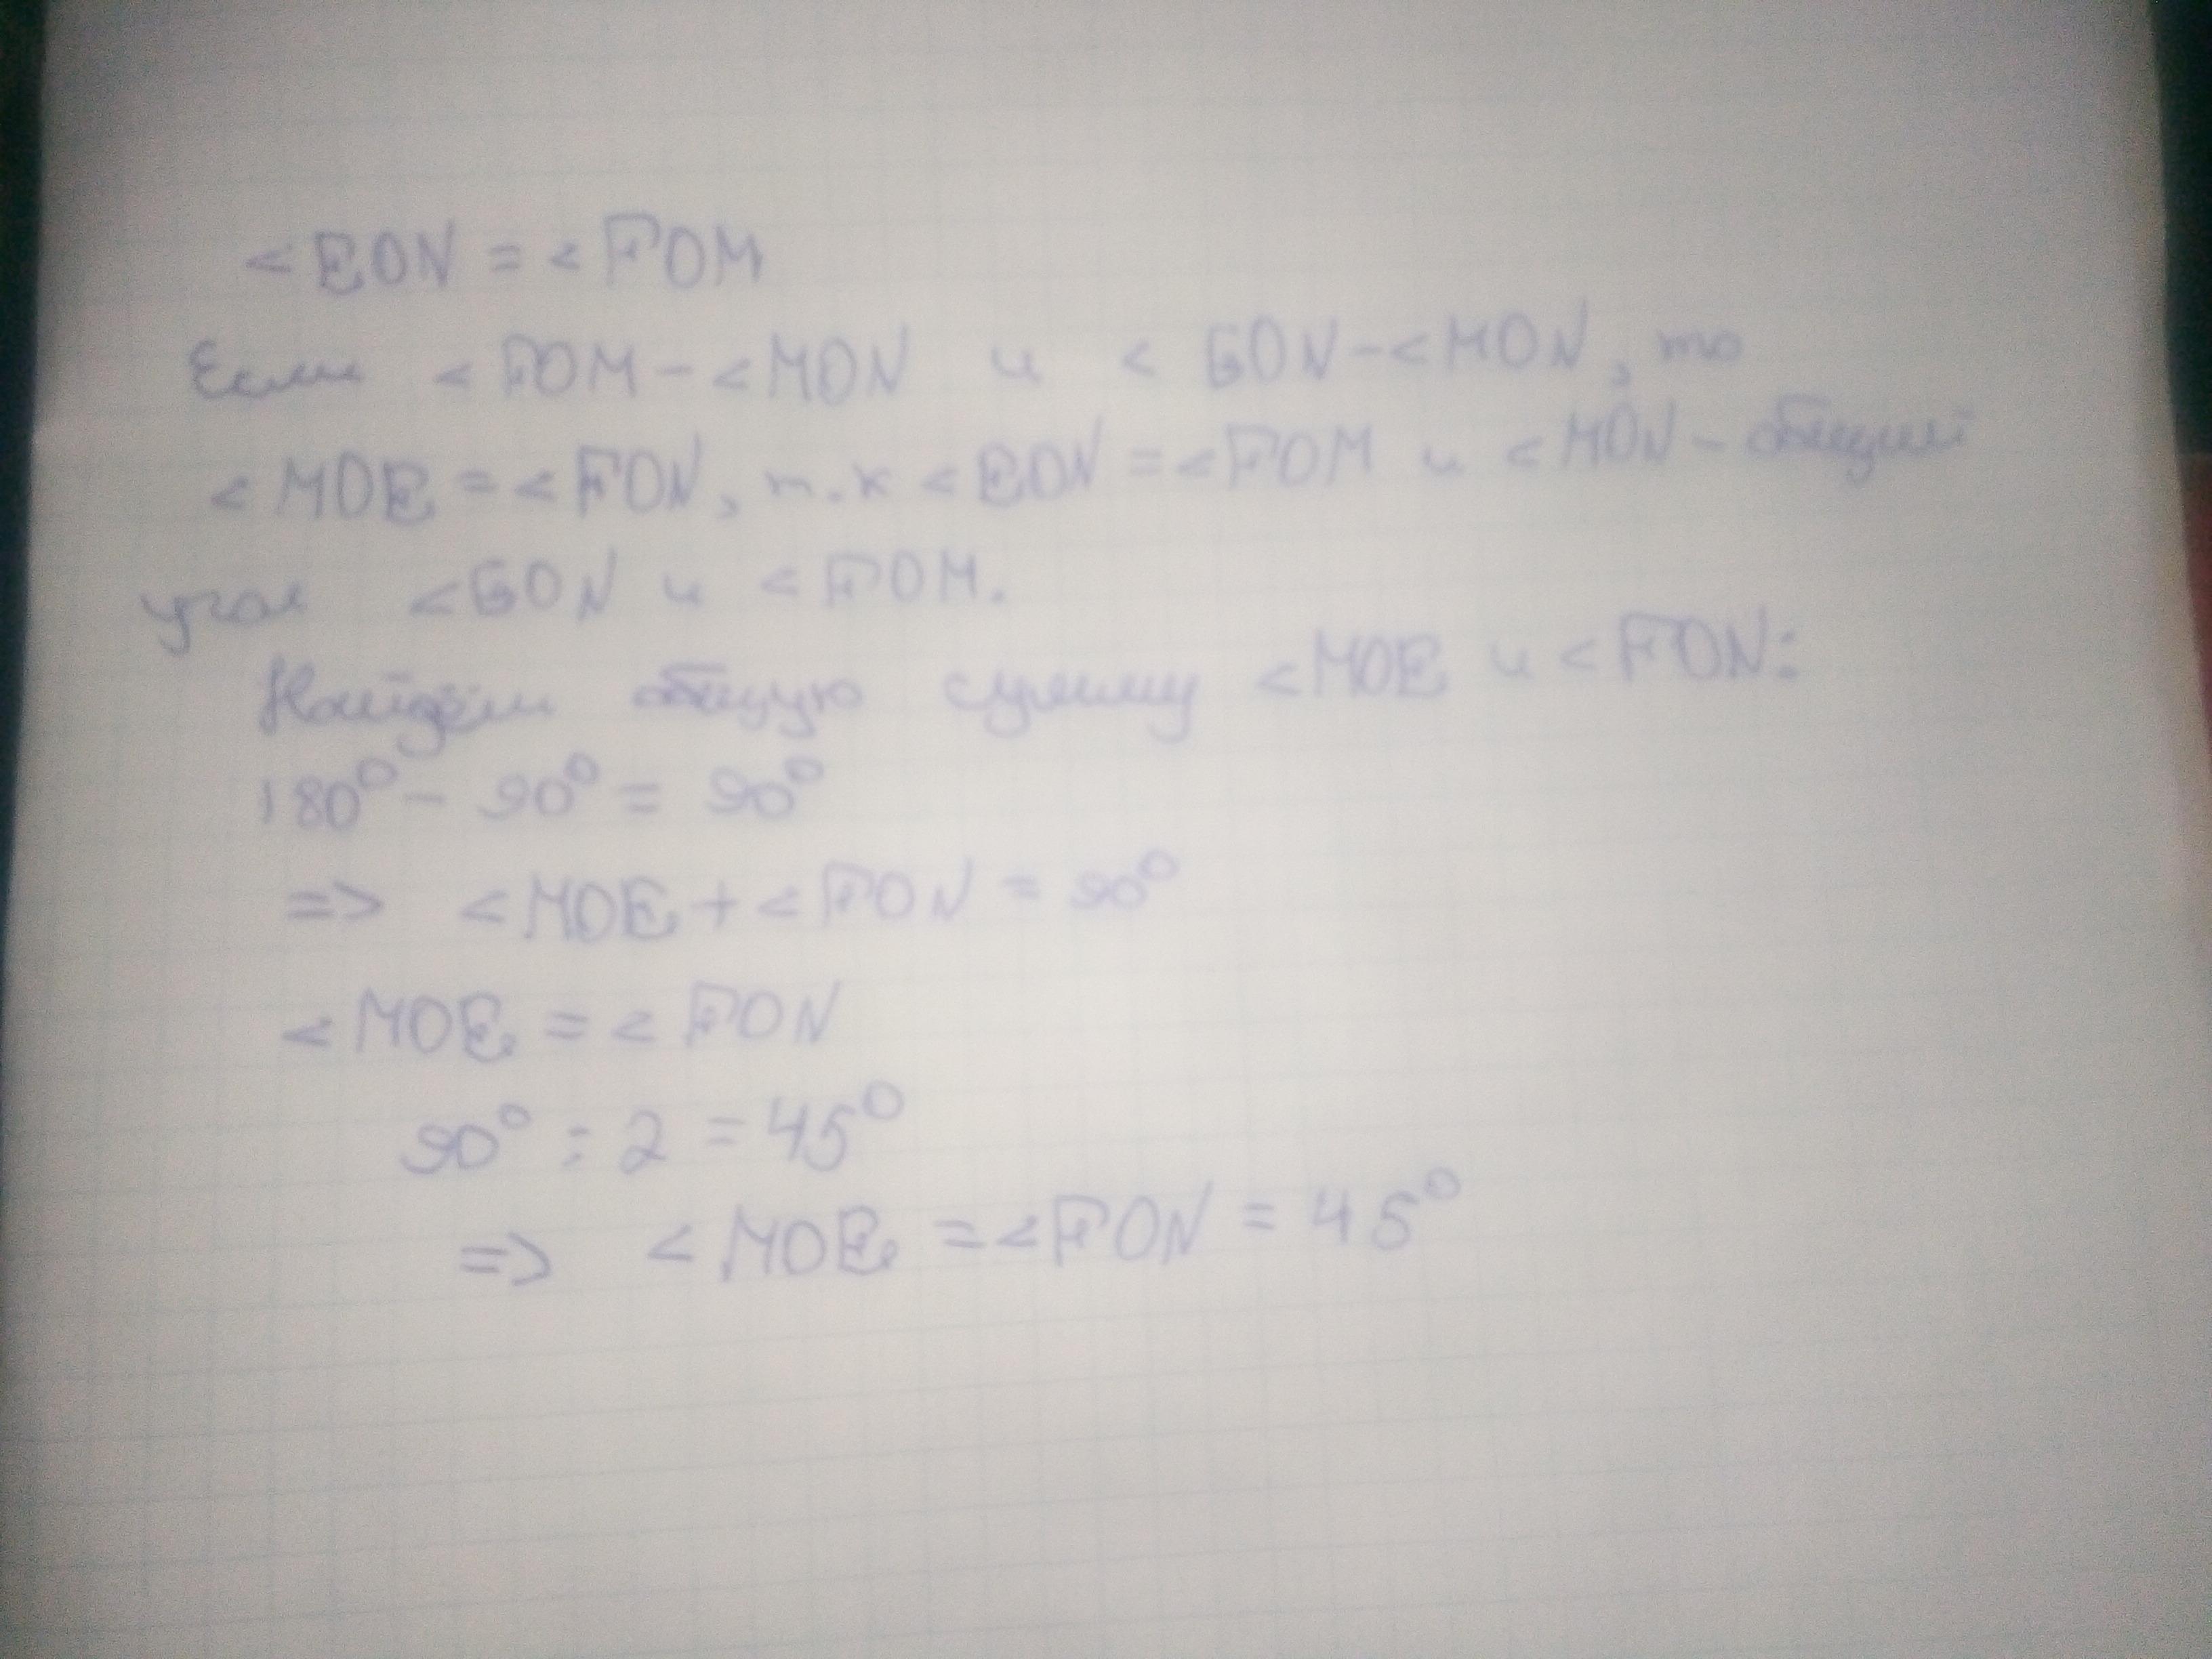 <EON = <FOM
Если <FOM - <MON и <EON - <MON, то
<MOE = <FON, т.к <EON = <FOM и <MON - общий
угол <EON и <FOM.
Найдём общую сумму <MOE и <FON:
180° - 90° = 90°
=> <MOE + <FON = 90°
<MOE = <FON
90° : 2 = 45°
=> <MOE = <FON = 45°